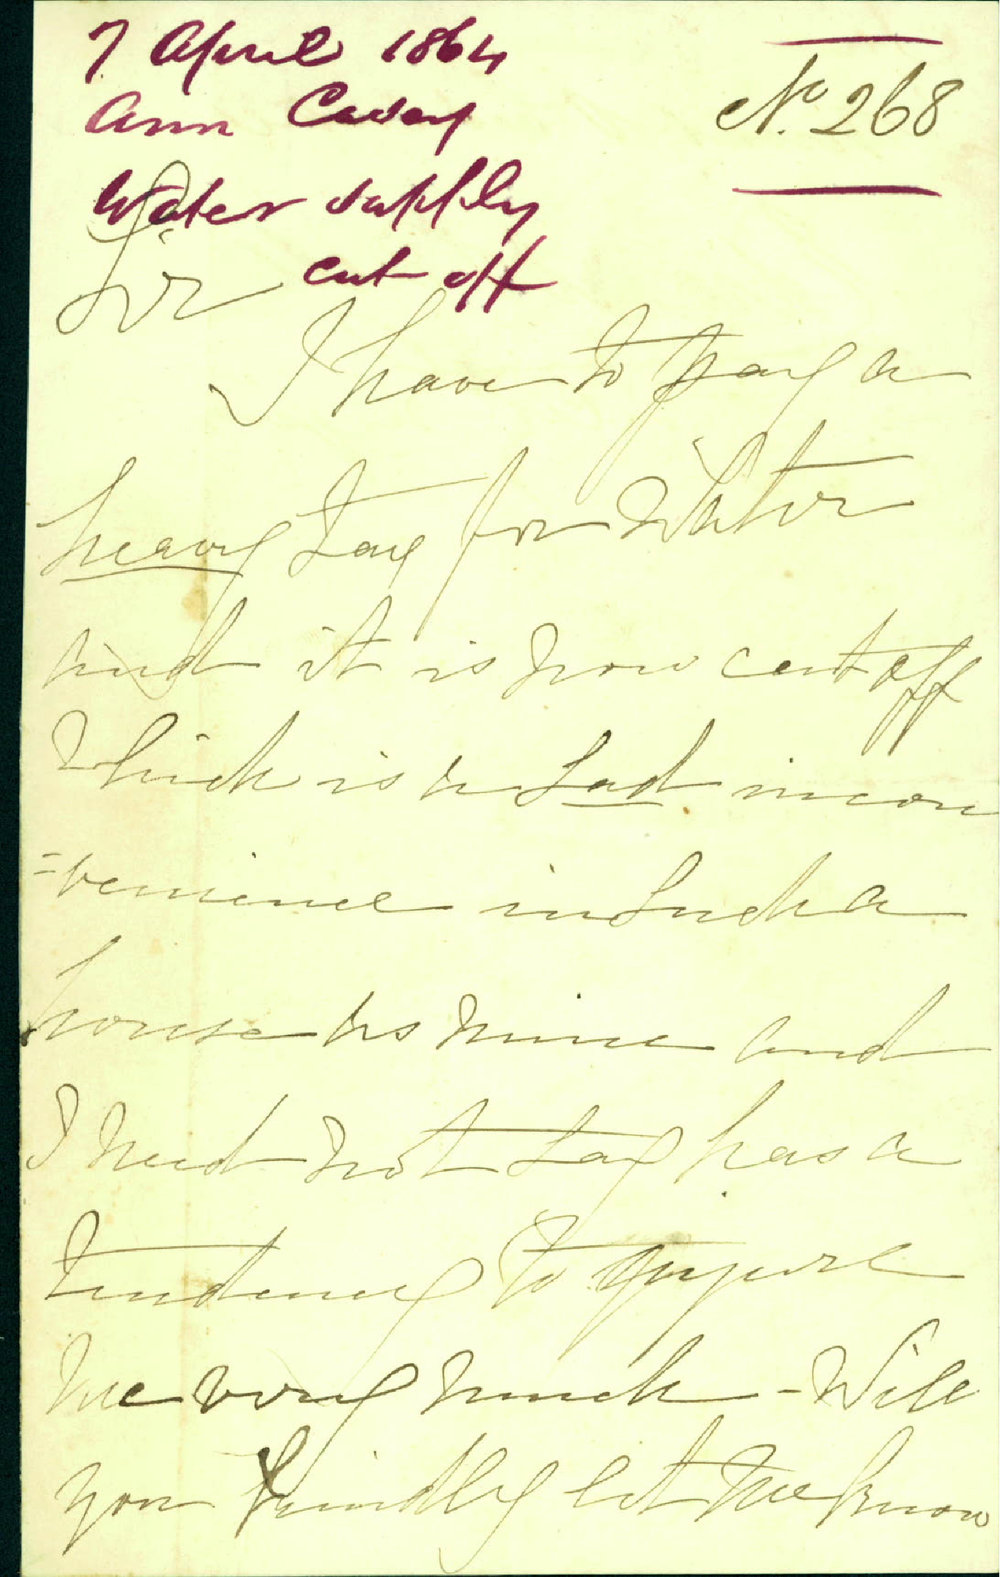 7 April 1864
No. 268
Ann Casey
Water supply
cut off
Sir
I have to pay a
heavy tax for Water
and it is now cut off
Which is a sad incon
=venience in such a
house as mine and
I need not say has a
tendency to injure
me very much - Will
you kindly let me know